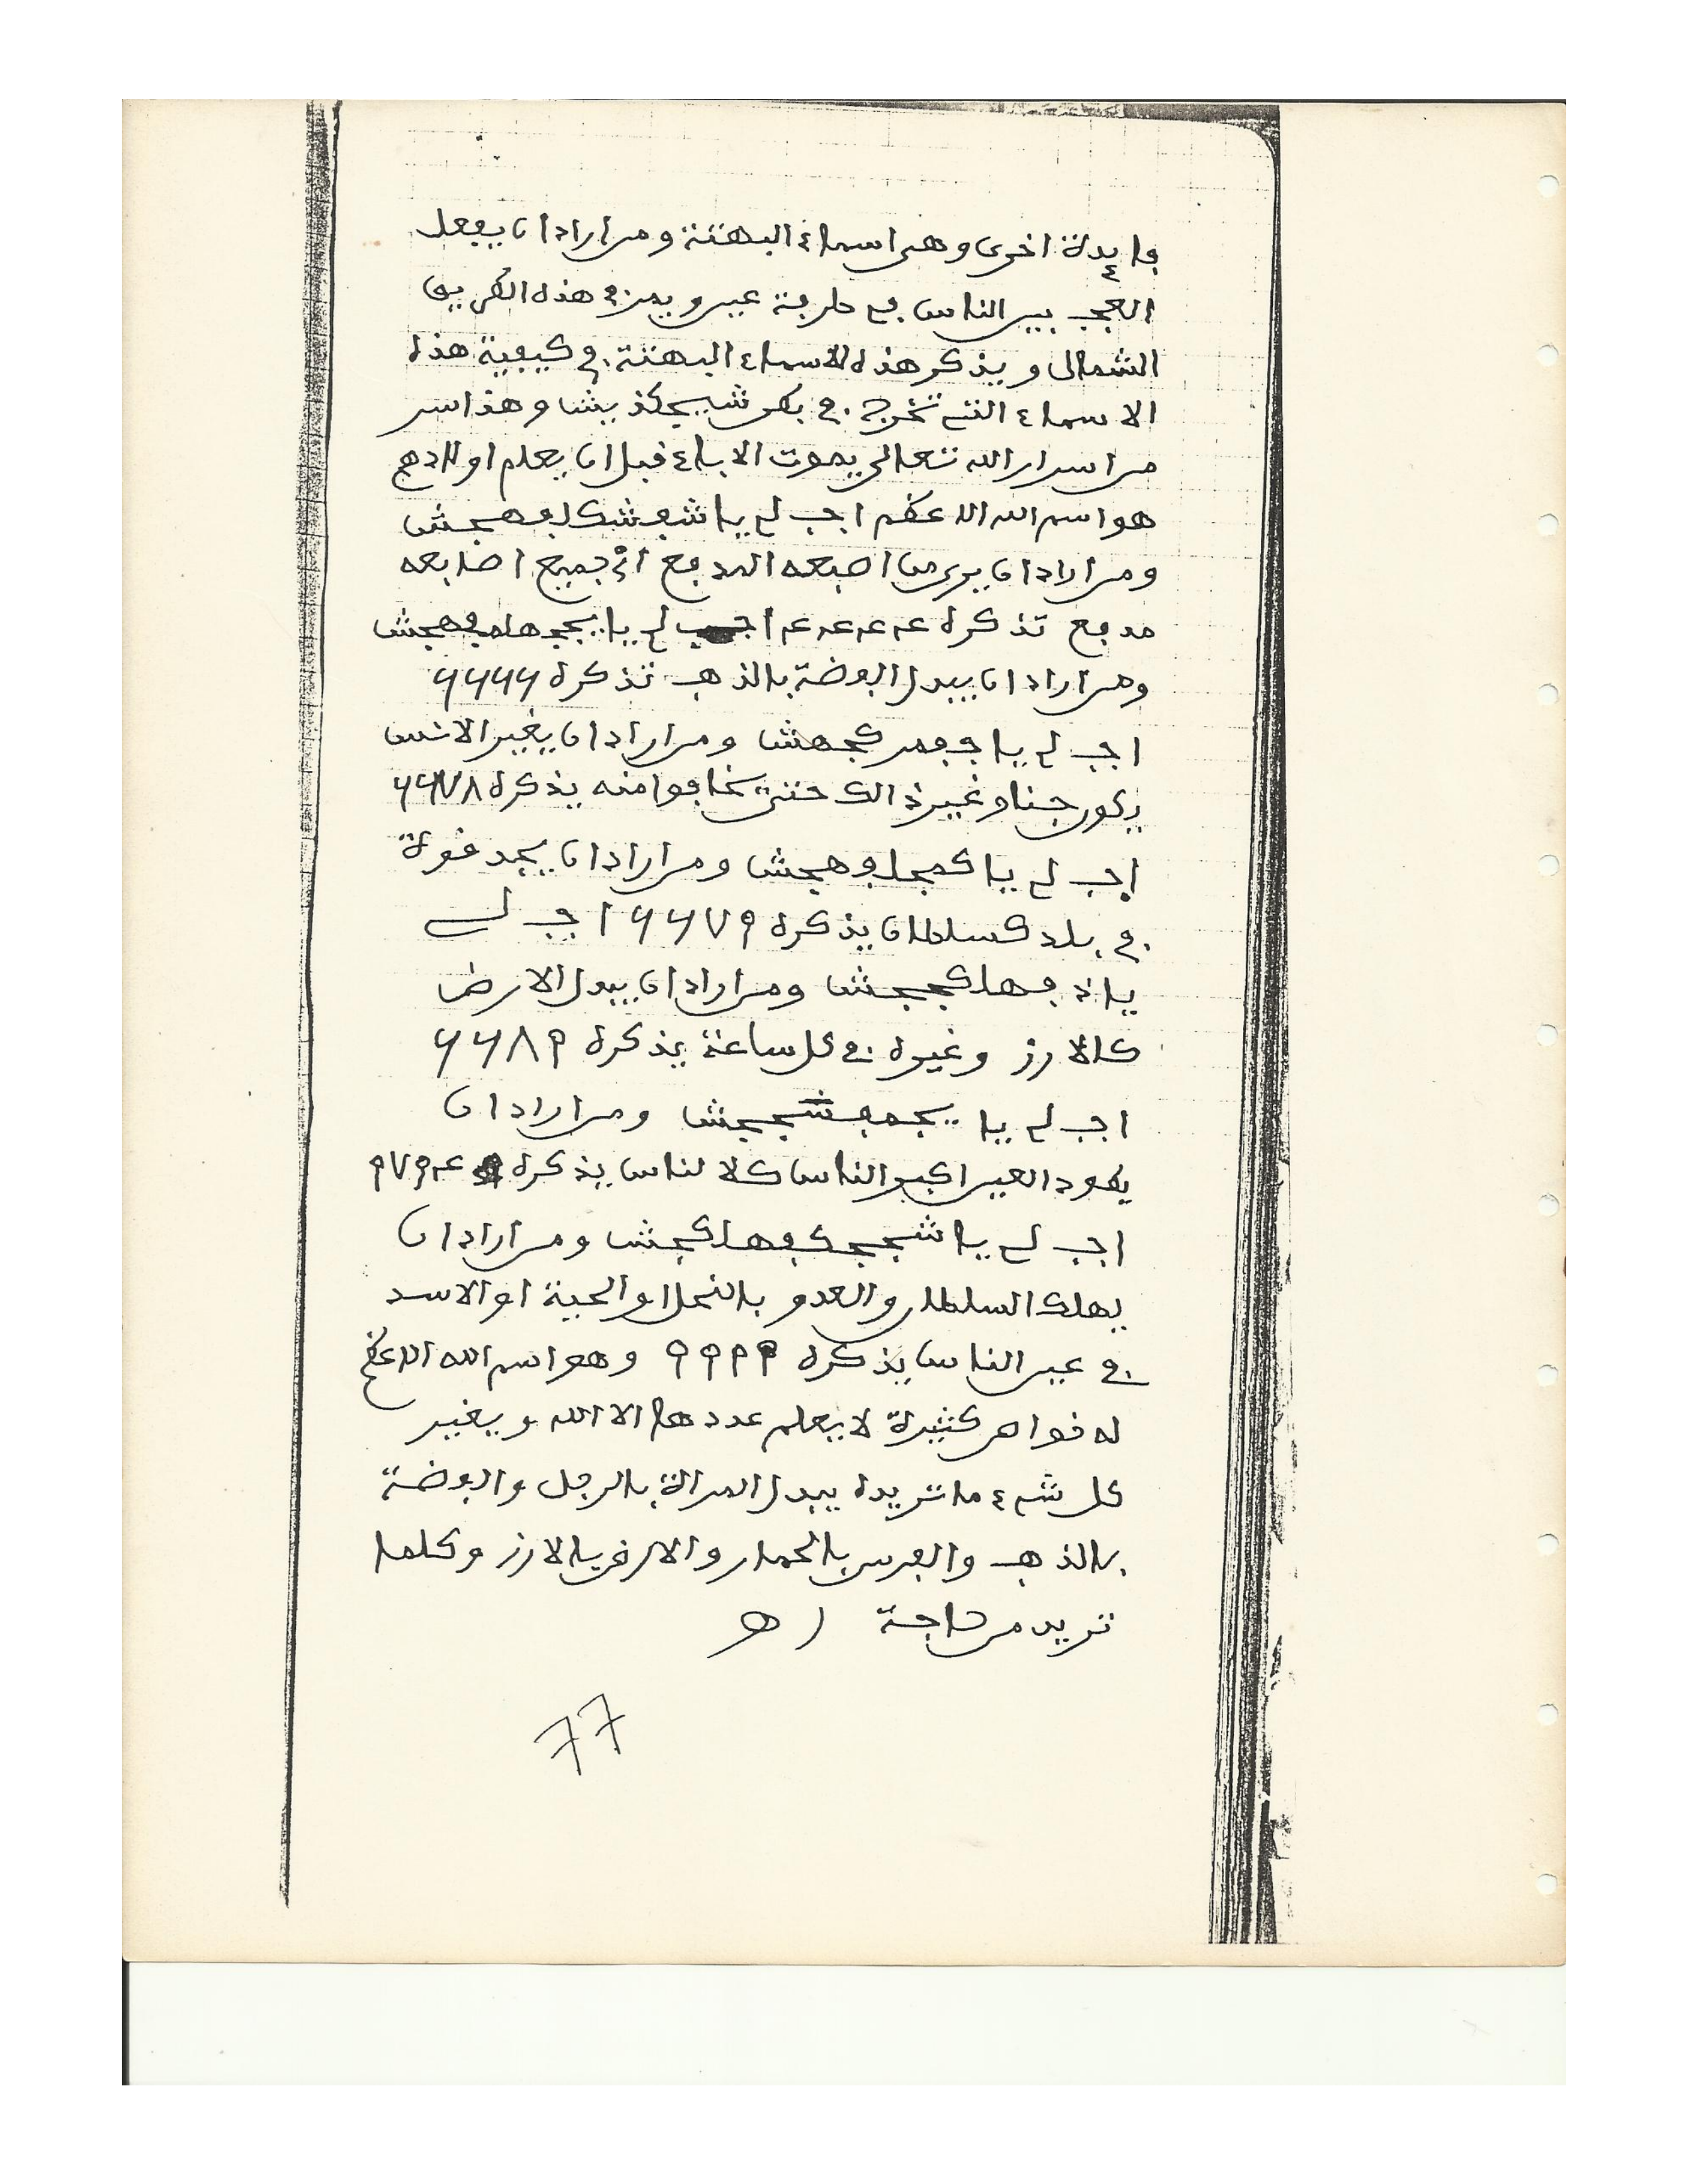 فايدة اخرى وهي اسماء البهتة ومن اراد ان يفعل
العجب بين الناس في طرفة عين ويمز في هذه الطريق
الشمالى ويذكر هذه الاسماء البهتة في كيفية هذه
الاسماء التي تخرج في وهذا سر
من اسرار الله تعالى يموت الاباء قبل ان يعلم اولادهم
هو اسم الله الاعظم اجب لي يا
ومن اراد ان يرى من اصبعه المدفع او جميع اصابعه
مدفع تذكره عـ عـ عـ عـ اجب لي يا
ومن اراد ان يبدل الفضة بالذهب تذكره ٦٦٦٦
اجب لي يا ومن اراد ان يغير الانس
يكون جنا وغير ذالك حتى يخافوا منه يذكره ٦٦٧٨
اجب لي يا ومن اراد ان يجد قوة
في بلد كسلطان يذكره ٦٦٧٩ اجب لي
يا ومن اراد ان يبدل الارض
كالارز وغيره في كل ساعة يذكره ٦٦٨٩
اجب لي يا ومن اراد ان
يعود العين اكبر الناس كلا لناس يذكره عـ٩٧٩
اجب لي يا ومن اراد ان
يهلك السلطان والعدو بالنحل او الحية او الاسد
في عين الناس يذكره ٩٩٩٩ وهو اسم الله الاعظم
له خواص كثيرة لا يعلم عددها الا الله ويغير
كل شيء ما تريده يبدل المراة بالرجل والفضة
بالذهب والفرس بالحمار والارض بالارز وكلما
تريد من حاجة اه
77